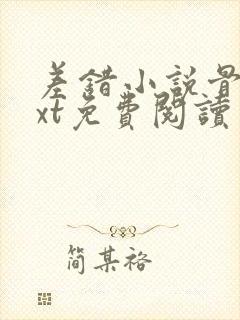 差錯小說
xt免費閱讀
簡某裕